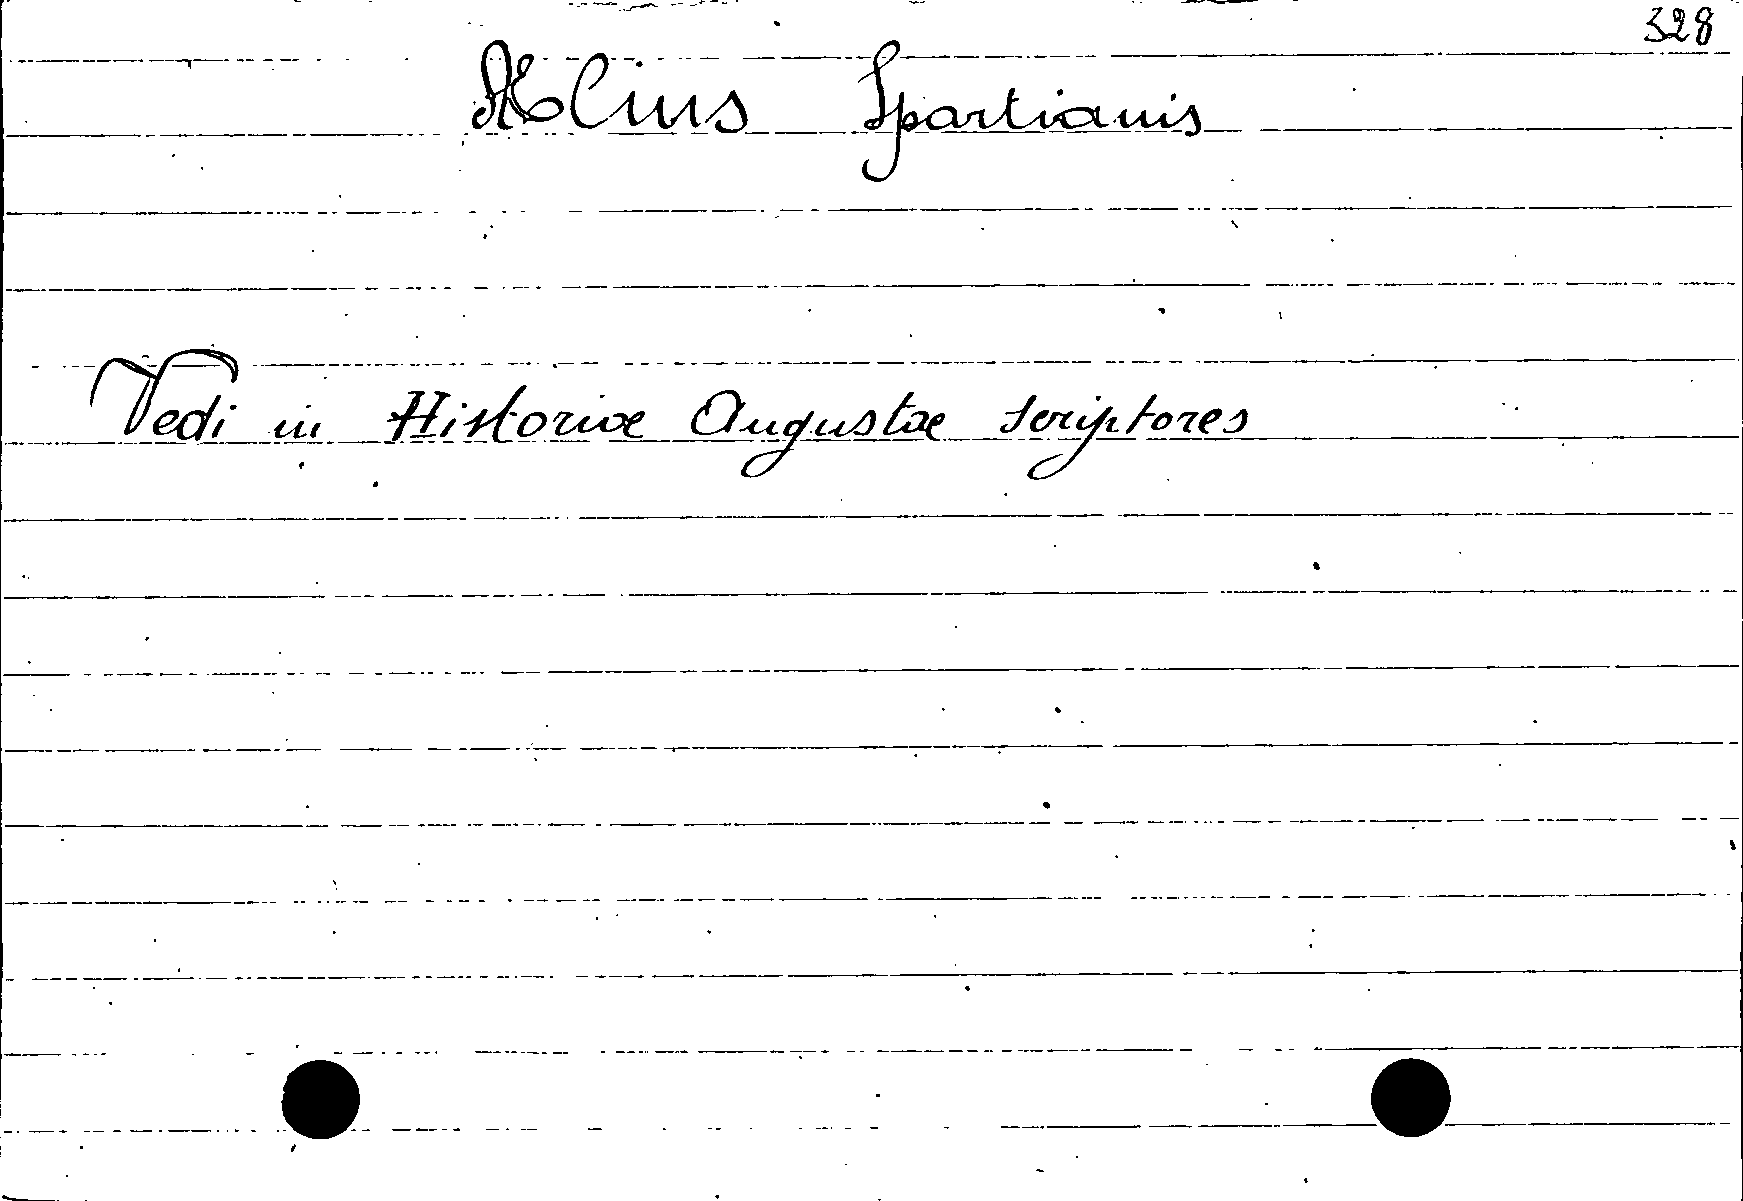 328
Ælius Spartianis
Vedi in Historiæ Augustæ Scriptores